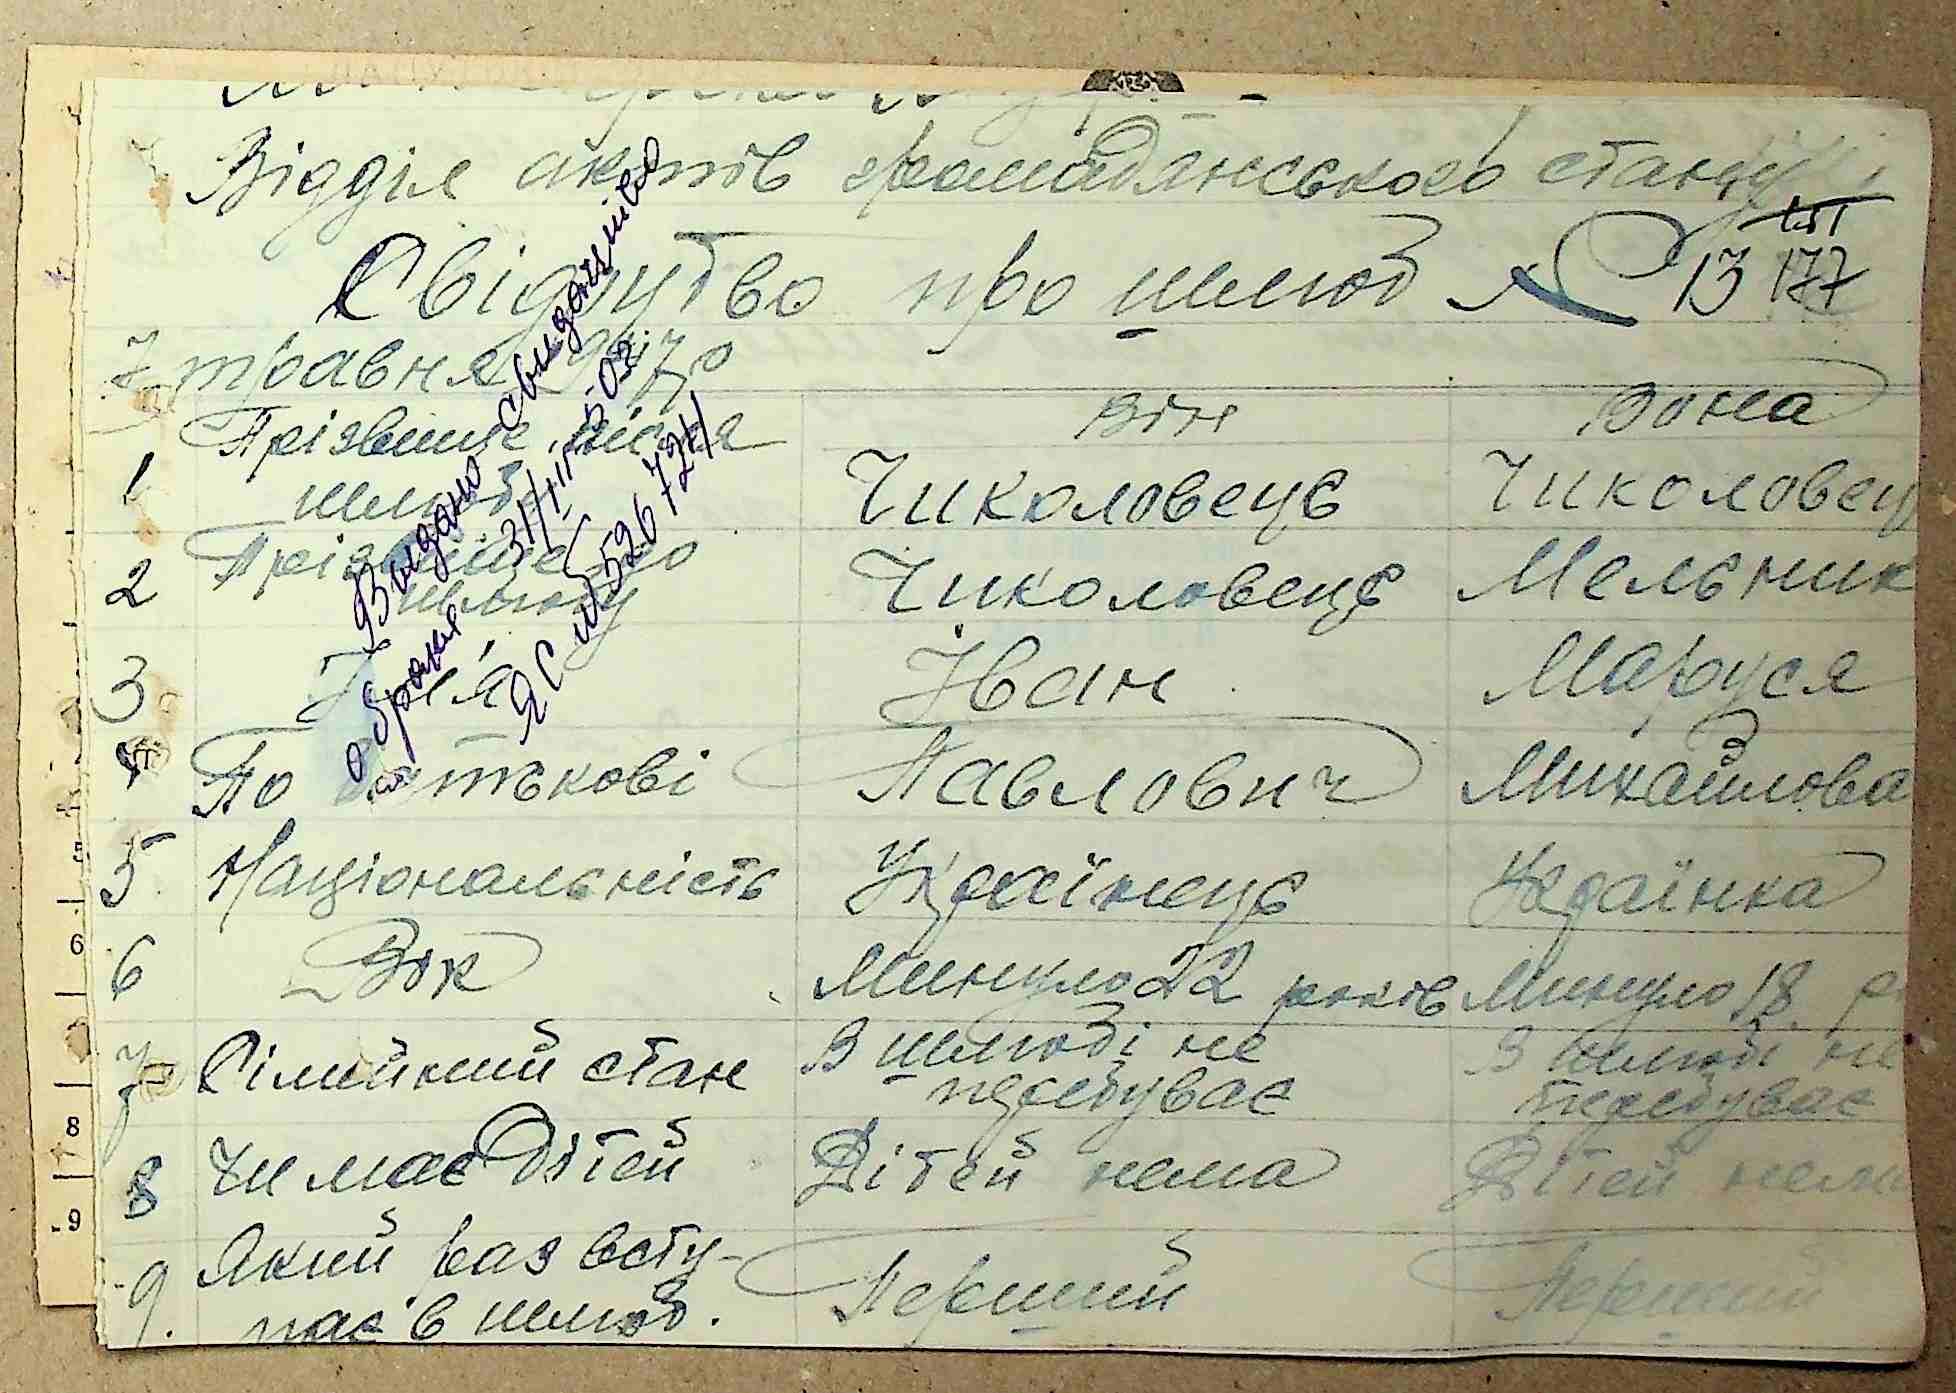 Відділ актів громадянського стану
Свідоцтво про шлюб № 13 177
151
7 травня
Він Вона
1 Прізвище після шлюбу Чиколовець Чиколовец
2 Прізвище до шлюбу Чиколовець Мельник
3 Ім'я Іван Маруся
4 По батькові Павлович Михайлова
5 Національність Українець Українка
6 Вік Минуло 22 років Минуло 18 р
7 Сімийний стан В шлюбі не перебуває В шлюбі не перебуває
8 Чи має дітей Дітей нема Дітей нема
9. Який раз всту-
пає в шлюб. Перший Перший
Выдано свидетельство
о браке
ЯС № 526724
5
6
8
9